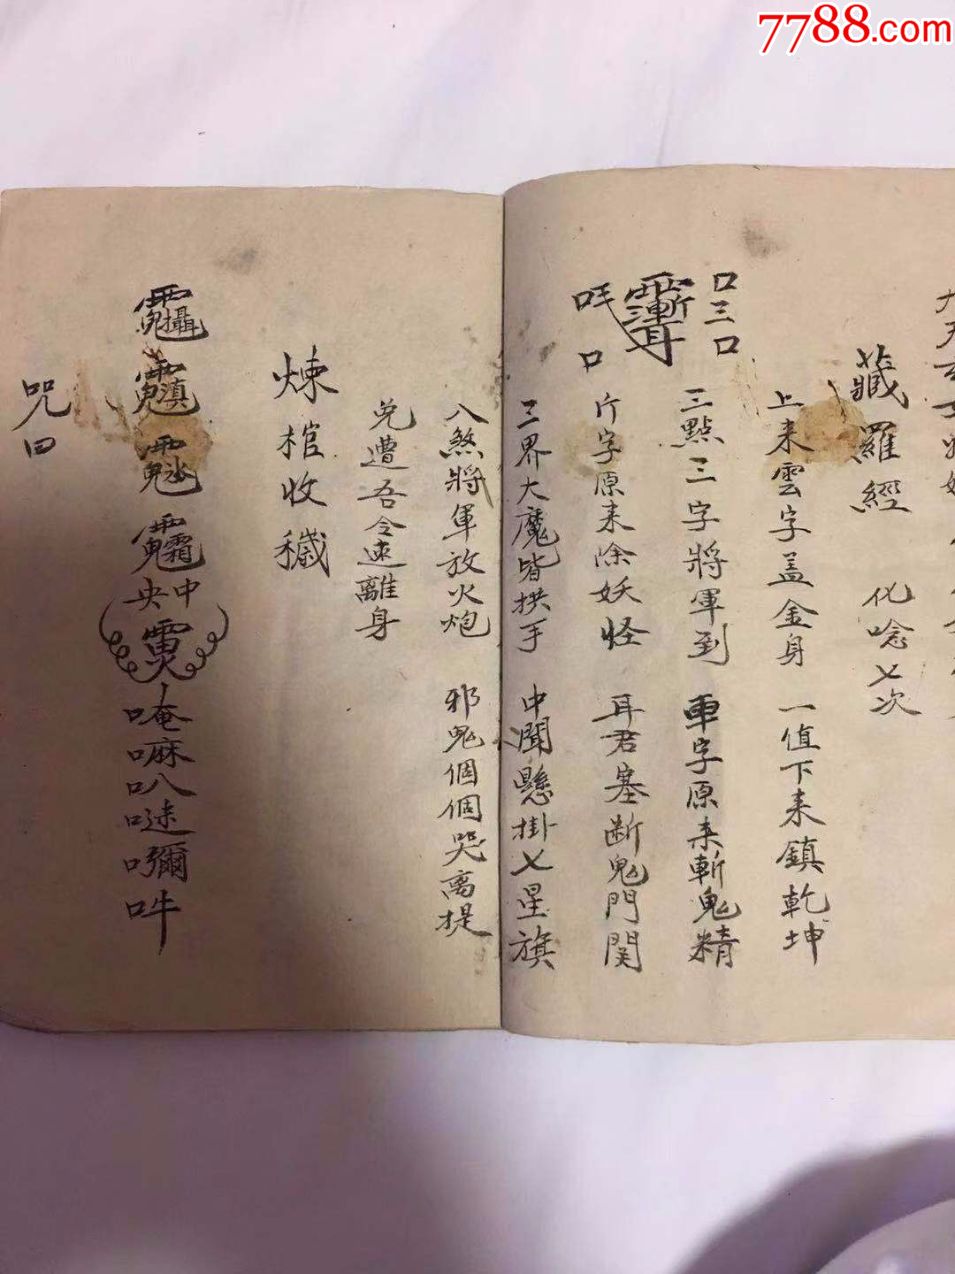 7788.com
藏羅經 化唸七次
上来雲字盖金身 一值下来鎮乾坤
口三口
三點三字將軍到 車字原来斬鬼精
口
片字原来除妖怪 耳君塞断鬼門関
三界大魔皆拱手 中聞懸掛七星旗
八煞將軍放火炮 邪鬼個個哭离提
免遭吾令速離身
煉棺收穢
中央
唵嘛叭噠嚩吽
咒曰